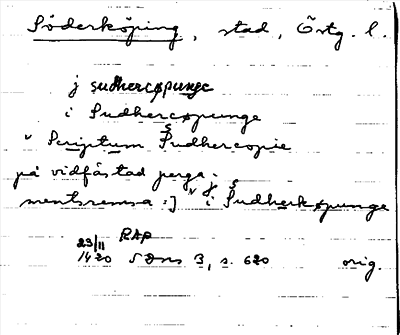 Söderköping, stad, Östg. l.
j sudhercøpunge
i Sudhercøpunge
" Scriptum Sudhercopie
på vidfåstad perga-
mentsremsa :] " i Sudherkøpunge
23/11 RAP
1420 SDns 3, s. 620 orig.